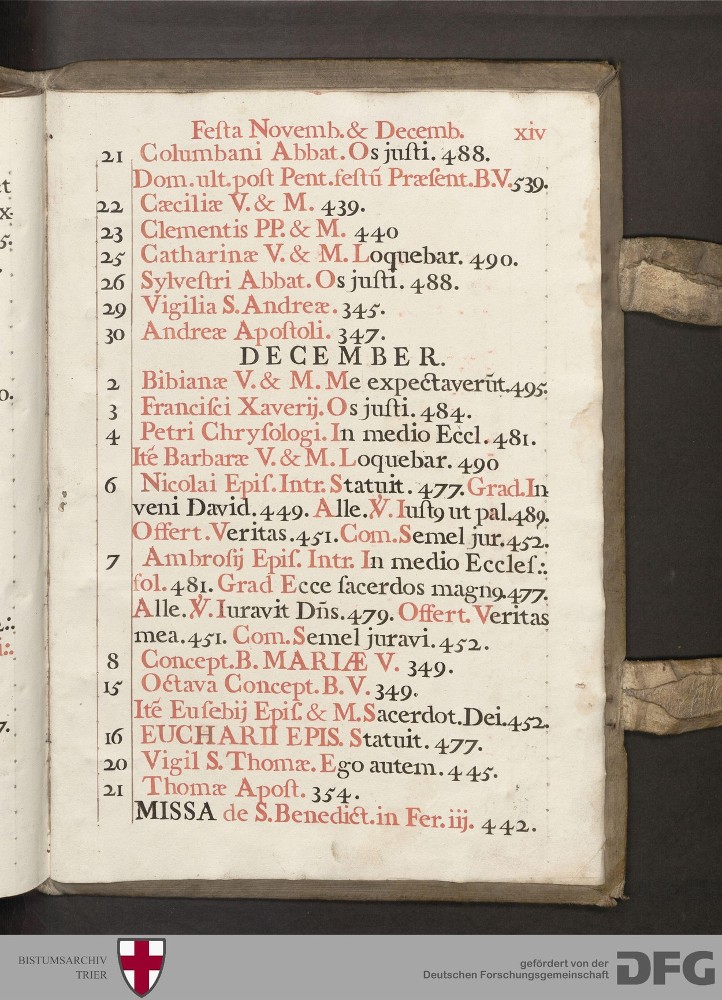 Feſta Novemb. & Decemb. xiv
21 Columbani Abbat. Os juſti. 488.
Dom. ult. poſt Pent. feſtū Præſent. B. V. 539.
22 Cæciliæ V. & M. 439.
23 Clementis PP. & M. 440
25 Catharinæ V. & M. Loquebar. 490.
26 Sylveſtri Abbat. Os juſti. 488.
29 Vigilia S. Andreæ. 345.
30 Andreæ Apoſtoli. 347.
DECEMBER.
2 Bibianæ V. & M. Me expectaverūt. 495.
3 Franciſci Xaverij. Os juſti. 484.
4 Petri Chryſologi. In medio Eccl. 481.
Itē Barbaræ V. & M. Loquebar. 490
6 Nicolai Epiſ. Intr. Statuit. 477. Grad. In
veni David. 449. Alle. ℣. Iuſtꝯ ut pal. 489.
Offert. Veritas. 451. Com. Semel jur. 452.
7 Ambroſij Epiſ. Intr. In medio Eccleſ.:
fol. 481. Grad Ecce ſacerdos magnꝯ. 477.
Alle. ℣. Iuravit Dn̄s. 479. Offert. Veritas
mea. 451. Com. Semel juravi. 452.
8 Concept. B. MARIÆ V. 349.
15 Octava Concept. B. V. 349.
Itē Euſebij Epiſ. & M. Sacerdot. Dei. 452.
16 EUCHARII EPIS. Statuit. 477.
20 Vigil S. Thomæ. Ego autem. 445.
21 Thomæ Apoſt. 354.
MISSA de S. Benedict. in Fer. iij. 442.
BISTUMSARCHIV
TRIER
gefördert von der
Deutschen Forschungsgemeinschaft
DFG